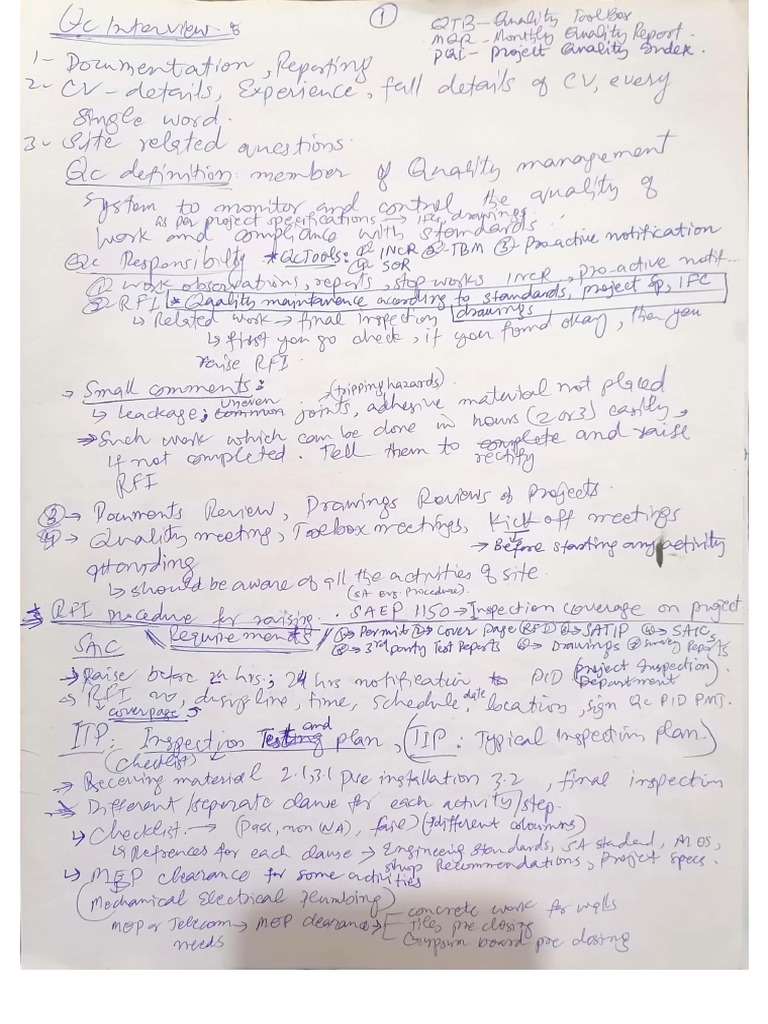 ①
Qc Interview :
QTB - Quality ToolBox
MQR - Monthly Quality Report.
PQI - Project Quality Index.
1- Documentation, Reporting
2- CV - details, Experience, full details of CV, every
single word.
3- Site related questions.
Qc definition: member of Quality management
system to monitor and control the quality of
as per project specifications → IFC, drawings.
work and compliance with standards.
Qc Responsibilty *QcTools: ① INCR ② TBM ③ Pro-active notification
④ SOR
① work observations, reports, stop works INCR → pro-active notif...
② RFI * Quality maintenance acording to standards, project sp, IFC
drawings
↳ Related work → final inspection
↳ first you go check, if you found okay, then you
raise RFI.
→ Small comments: (tripping hazards).
↳ Leackage; uneven joints, adhesive material not placed
→ Such work which can be done in hours (2 or 3) easily,
if not completed. Tell them to rectify and raise
RFI
③ → Documents Review, Drawings Reviews of Projects.
④ → Quality meeting, Toolbox meetings, Kick off meetings
→ Before starting any activity
Attending
↳ should be aware of all the activities of site.
(SA Eng. Procedure).
* RFI procedure for raising. SAEP 1150 → Inspection coverage on project
SAIC Requirements ① Permit ② Cover page (RFI) ③ SATIP ④ SAICs
⑤ 3rd party Test Reports ⑥ Drawings ⑦ survey Reports
→ Raise before 24 hrs.; 24 hrs notification to PID (Project Inspection Department).
→ RFI no, discipline, time, schedule, date, location, sign Qc PID PMT.
↳ coverpage
ITP: Inspection and Testing plan, (TIP: Typical Inspection plan.)
(checklist)
→ Receiving material 2.1, 3.1 pre installation 3.2, final inspection
→ Different/seperate clause for each activity/step.
↳ Checklist. → (Pass, non (NA), faile) (different coloumns)
↳ Refrences for each clause → Engineering Standards, SA standard, MOS,
shop Recommendations, Project specs.
↳ MEP clearance for some activities
(Mechanical Electrical Plumbing)
MEP or Telecom → MEP clearance → concrete work for walls
needs
Tiles pre closing
Gypsum board pre closing